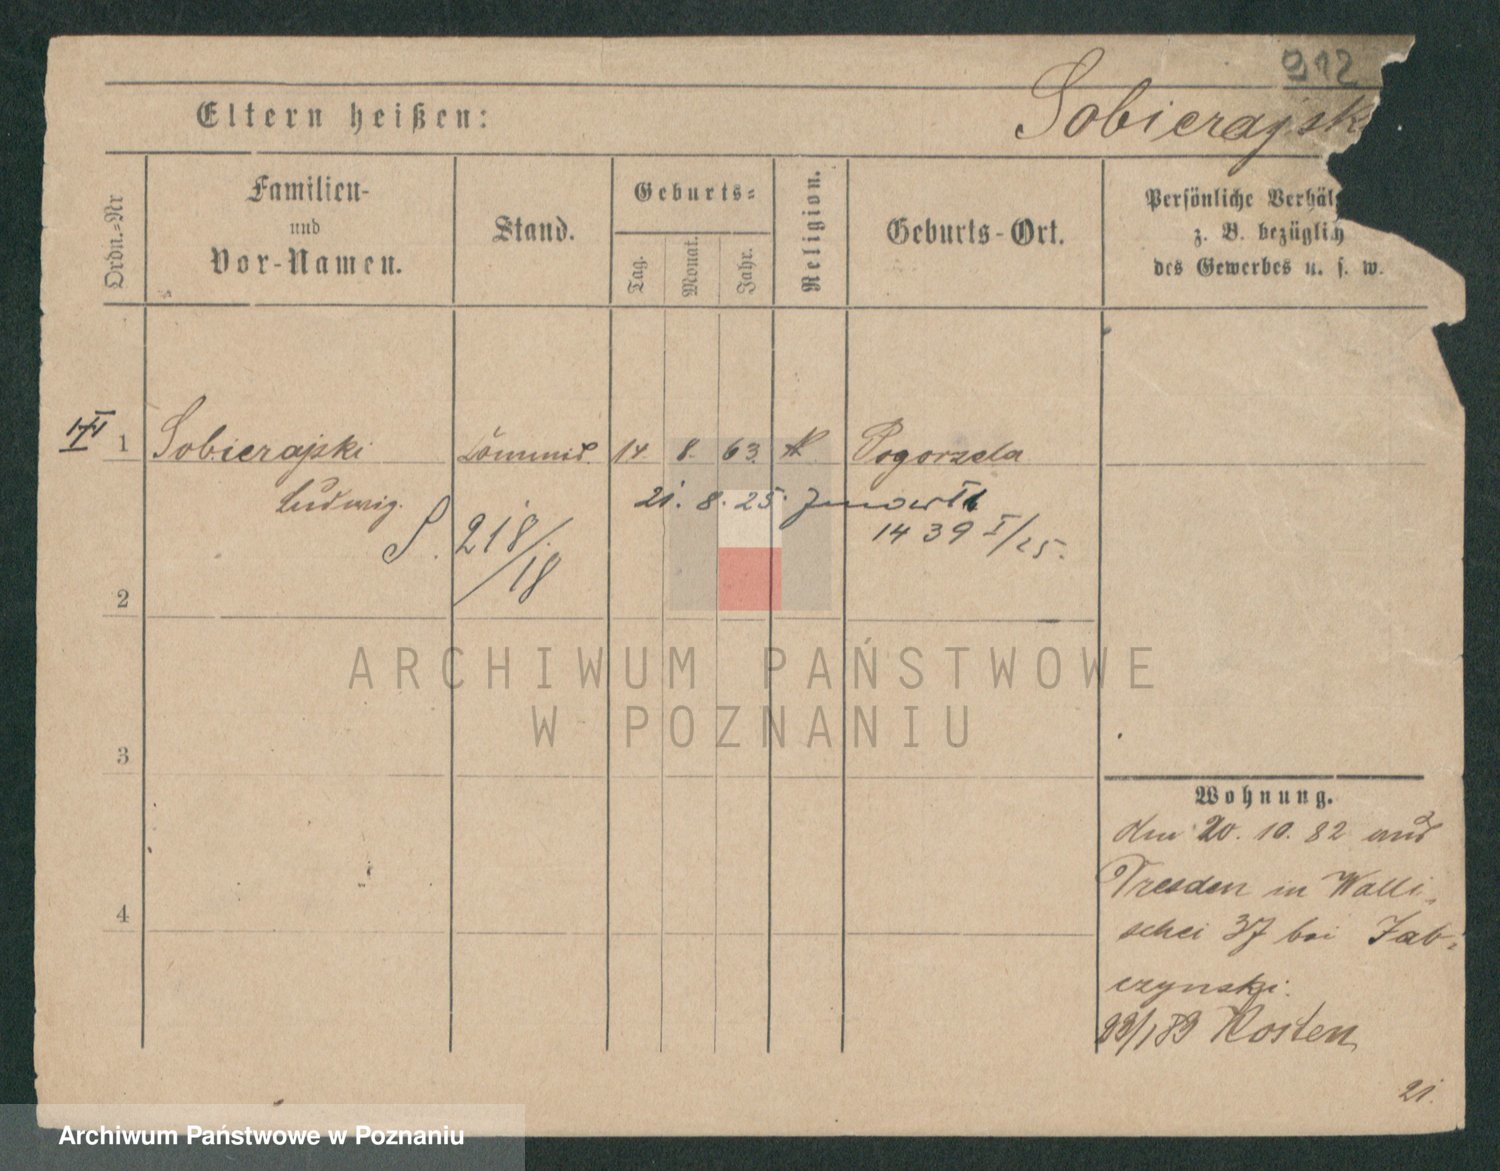 912
Eltern heißen:
Sobierajsk
Ordn.-Nr
Familien-
und
Vor-Namen.
Stand.
Geburts-
Tag.
Monat.
Jahr.
Religion.
Geburts-Ort.
Persönliche Verhäl
z. B. bezüglich
des Gewerbes u. s. w.
1 Sobierajski 14. 8. 63. K. Pogorzela
Ludwig.
21. 8. 25.
S. 218/18
1439 I/25.
2
3
4
ARCHIWUM PAŃSTWOWE
W POZNANIU
Wohnung.
den 20. 10. 82 aus
Dresden in Walli-
schei 37 bei Jab-
czynski.
Kosten
21.
Archiwum Państwowe w Poznaniu